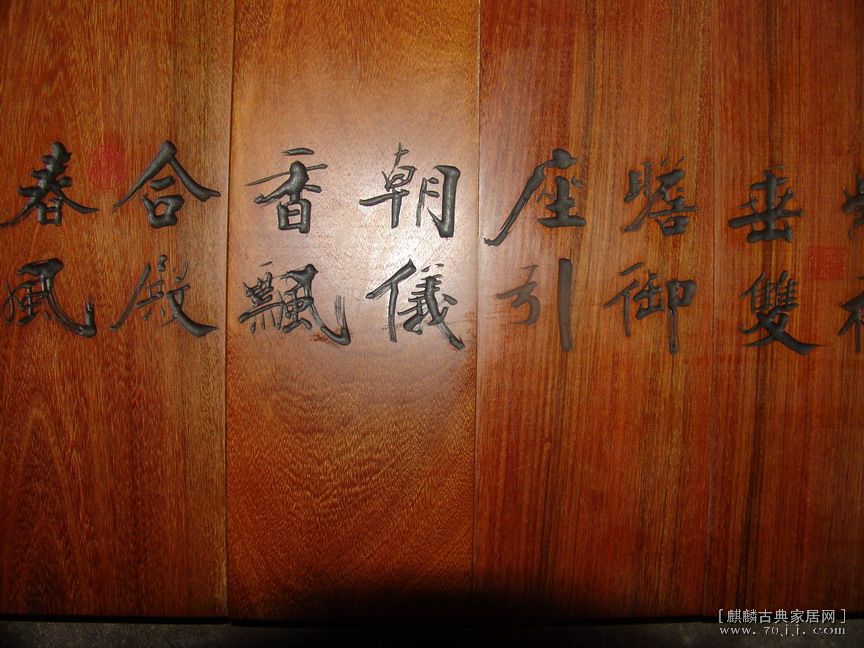 垂雙
瞻御
座引
朝儀
香飄
合殿
春風
[麒麟古典家居网]
www.76jj.com